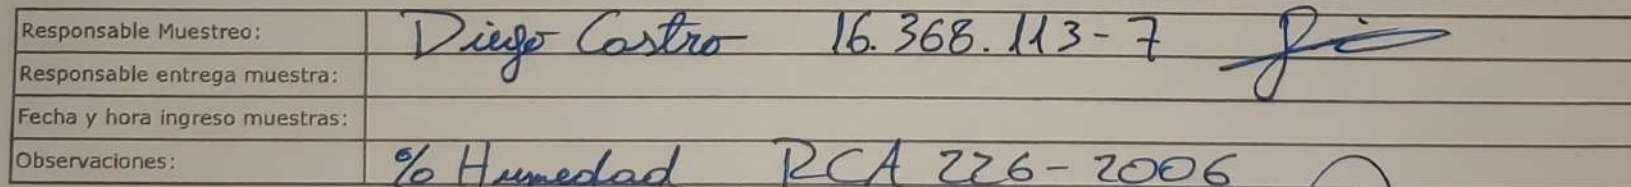 Responsable Muestreo: Diego Castro 16.368.113-7
Responsable entrega muestra:
Fecha y hora ingreso muestras:
Observaciones: % Humedad RCA 226-2006